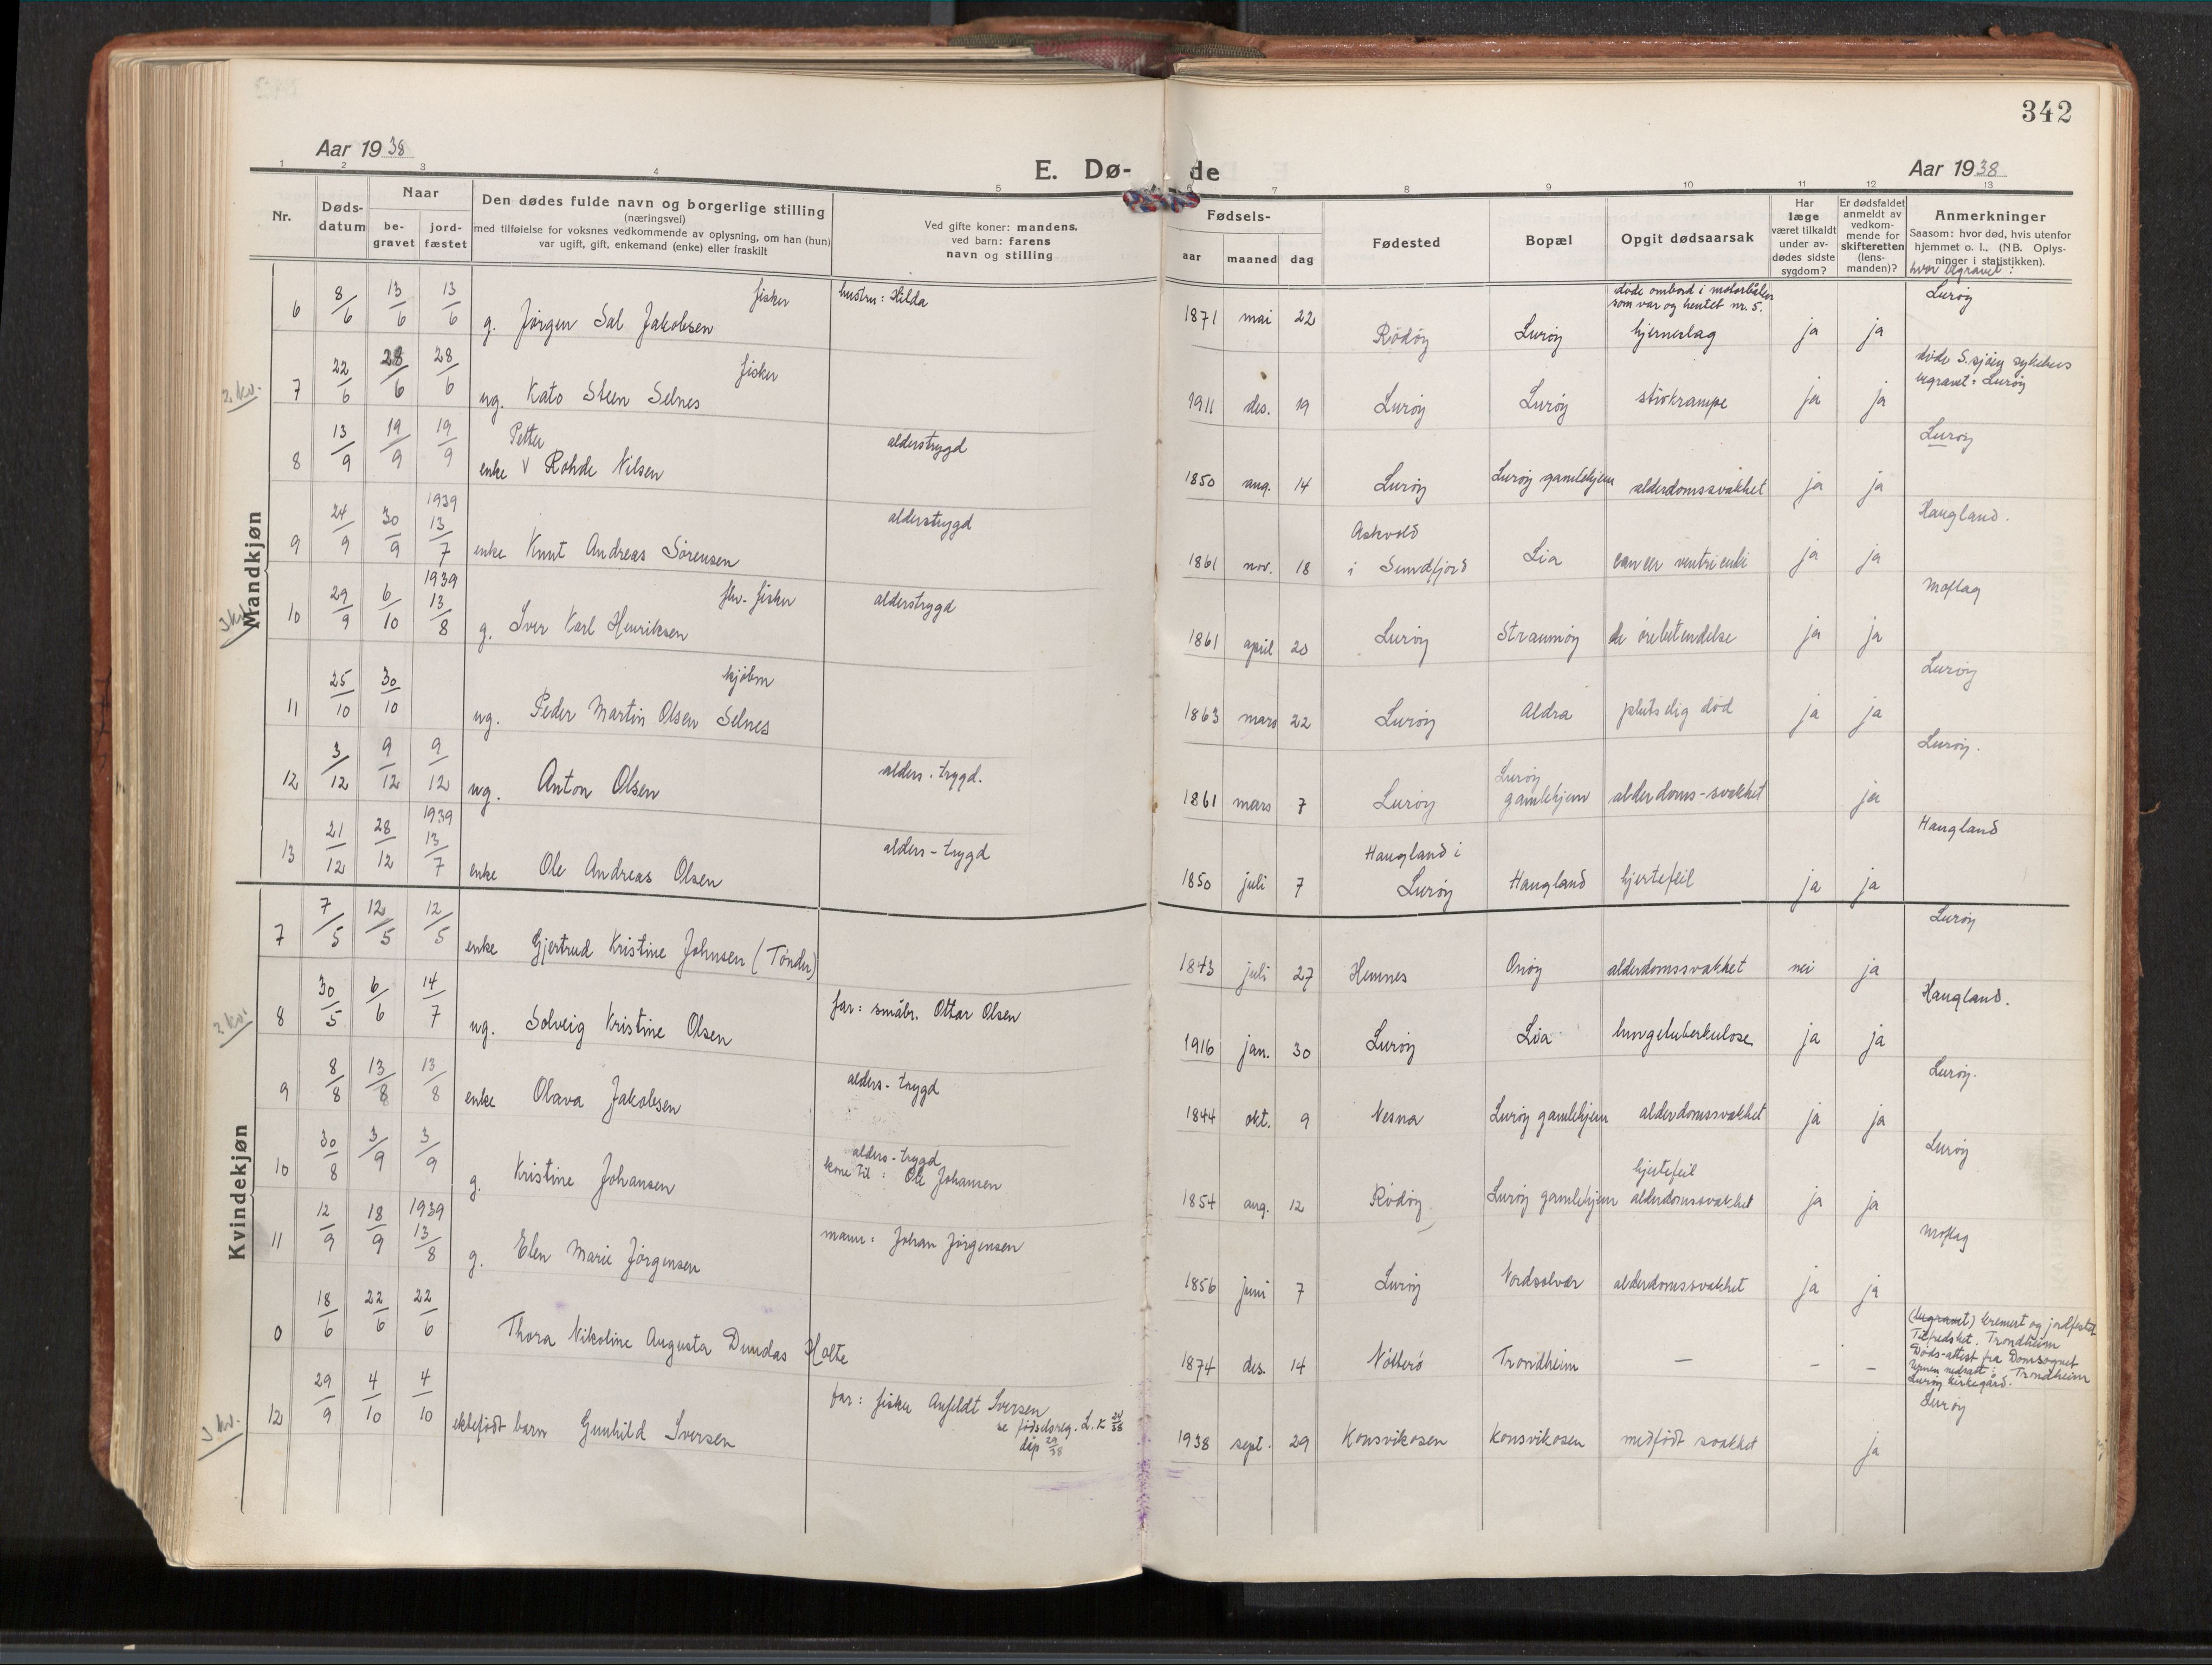 342
Aar 1938
E. Dø-
de
Aar 1938
1 2 3 4 5 6 7 8 9 10 11 12 13
Nr.
Døds-
datum
Naar
be-
gravet
jord-
fæstet
Den dødes fulde navn og borgerlige stilling
(næringsvei)
med tilføielse for voksnes vedkommende av oplysning, om han (hun)
var ugift, gift, enkemand (enke) eller fraskilt
Ved gifte koner: mandens,
ved barn: farens
navn og stilling
Fødsels-
aar maaned dag
Fødested
Bopæl
Opgit dødsaarsak
Har
læge
været tilkaldt
under av-
dødes sidste
sygdom?
Er dødsfaldet
anmeldt av
vedkom-
mende for
skifteretten
(lens-
manden)?
Anmerkninger
Saasom: hvor død, hvis utenfor
hjemmet o. l., (NB. Oplys-
ninger i statistikken).
hvor begravet:
Mandkjøn
6 8/6 13/6 13/6 fisker
g. Jørgen Sal Jakobsen
hustru: Hilda
1871 mai 22 Rødøy Lurøy
døde ombord i motorbåten
som var og hentet nr. 5.
hjerneslag ja ja Lurøy
2. kv.
7 22/6 28/6 28/6 fisker
ug. Kato Steen Selnes
1911 des. 19 Lurøy Lurøy stivkrampe ja ja
døde S.sjøen sykehus
begravet: Lurøy
8 13/9 19/9 19/9 Petter
enke V Rohde Nilsen
alderstrygd
1850 aug. 14 Lurøy Lurøy gamlehjem alderdomssvakhet ja ja Lurøy
9 24/9 30/9 1939 13/7
enke Knut Andreas Sørensen
alderstrygd
1861 nov. 18 Askvold
i Sundfjord Lia cancer ventriculi ja ja Haugland.
3 kv.
10 29/9 6/10 1939 13/8 fhv. fisker
g. Iver Karl Henriksen
alderstrygd
1861 april 20 Lurøy Straumøy ørebetendelse ja ja Moflag
11 25/10 30/10 kjøbm
ug. Peder Martin Olsen Selnes
1863 mars 22 Lurøy Aldra plutselig død ja ja Lurøy
12 3/12 9/12 9/12
ug. Anton Olsen
alders-trygd.
1861 mars 7 Lurøy Lurøy
gamlehjem alderdoms-svakhet ja Lurøy.
13 21/12 28/12 1939 13/7
enke Ole Andreas Olsen
alders-trygd
1850 juli 7 Haugland i
Lurøy Haugland hjertefeil ja ja Haugland
Kvindekjøn
7 7/5 12/5 12/5
enke Gjertrud Kristine Johnsen (Tønder)
1843 juli 27 Hemnes Onøy alderdomssvakhet nei ja Lurøy
2 kv.
8 30/5 6/6 14/7
ug. Solveig Kristine Olsen
far: småbr. Ottar Olsen
1916 jan. 30 Lurøy Lia lungetuberkulose ja ja Haugland.
9 8/8 13/8 13/8
enke Olava Jakobsen
alders-trygd
1844 okt. 9 Nesna Lurøy gamlehjem alderdomssvakhet ja ja Lurøy.
10 30/8 3/9 3/9
g. Kristine Johansen
alders-trygd
kone til: Ole Johansen
1854 aug. 12 Rødøy Lurøy gamlehjem hjertefeil
alderdomssvakhet ja ja Lurøy
11 12/9 18/9 1939 13/8
g. Elen Marie Jørgensen
mann: Johan Jørgensen
1856 juni 7 Lurøy Nordsolvær alderdomssvakhet ja ja Moflag
0 18/6 22/6 22/6
Thora Nikoline Augusta Dundas Holte
1874 des. 14 Nøtterø Trondheim — — —
(begravet) kremert og jordfestet
Tilfredshet. Trondheim
Døds-attest fra Domsognet
Urnen nedsatt i Trondheim
Lurøy kirkegård.
3 kv.
12 29/9 4/10 4/10
ektefødt barn Gunhild Iversen
far: fisker Anfeldt Iversen
se fødselsreg. L. K 24/38
dåp 29/38
1938 sept. 29 Konsvikosen Konsvikosen medfødt svakhet ja Lurøy